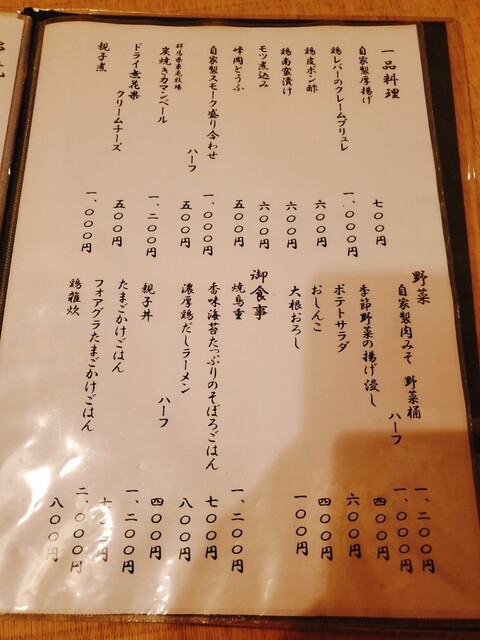 一品料理
自家製厚揚げ 七〇〇円
鶏レバーのクレームブリュレ 一、〇〇〇円
鶏皮ポン酢 六〇〇円
鶏南蛮漬け 六〇〇円
モツ煮込み 六〇〇円
峰岡とうふ 五〇〇円
自家製スモーク盛り合わせ 一、〇〇〇円
ハーフ 五〇〇円
群馬県東毛牧場
炭焼きカマンベール 一、二〇〇円
ドライ無花果 クリームチーズ 五〇〇円
親子煮 一、〇〇〇円
野菜
自家製肉みそ 野菜桶 一、二〇〇円
ハーフ 一、〇〇〇円
季節野菜の揚げ浸し 四〇〇円
ポテトサラダ 六〇〇円
おしんこ 四〇〇円
大根おろし 一〇〇円
御食事
焼鳥重 一、二〇〇円
香味海苔たっぷりのそぼろごはん 七〇〇円
濃厚鶏だしラーメン 八〇〇円
ハーフ 四〇〇円
親子丼 一、二〇〇円
たまごかけごはん 七〇〇円
フォアグラたまごかけごはん 二、〇〇〇円
鶏雑炊 八〇〇円